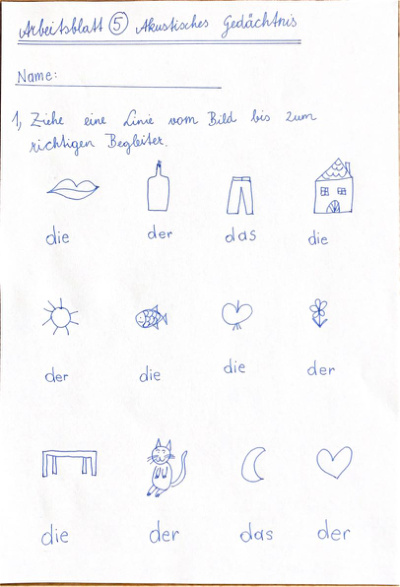 Arbeitsblatt 5 Akustisches Gedächtnis
Name:
1, Ziehe eine Linie vom Bild bis zum
richtigen Begleiter.
die der das die
der die die der
die der das der